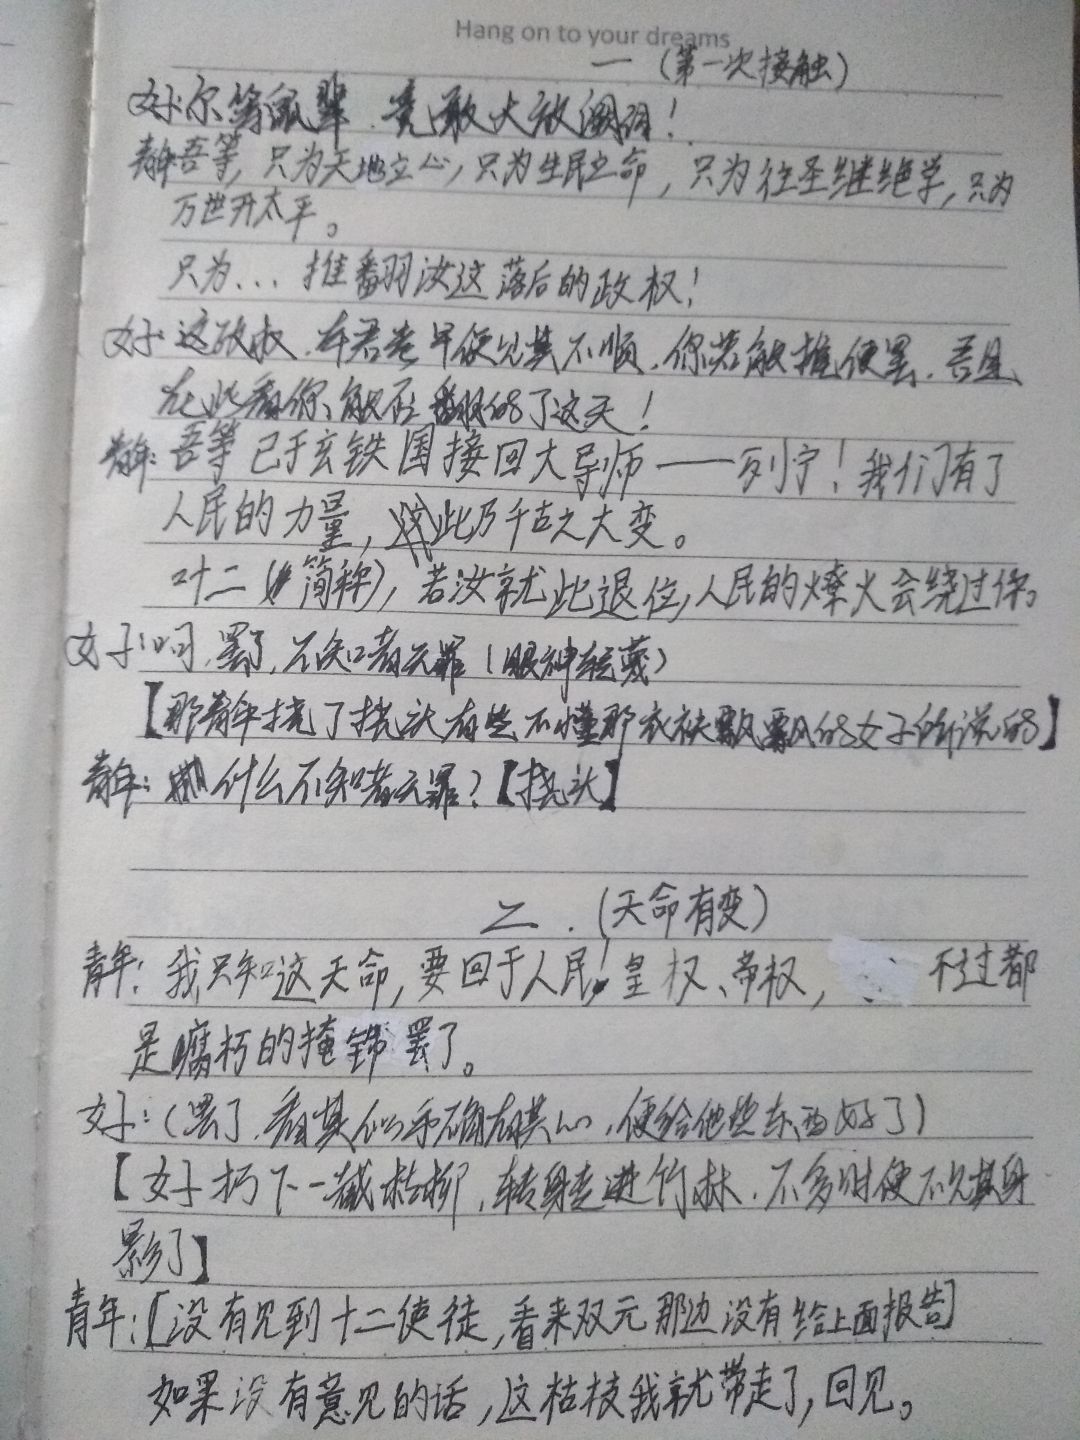 Hang on to your dreams
一 (第一次接触)
女子:尔等鼠辈.竟敢大放厥词!
青年:吾等,只为天地立心,只为生民立命,只为往圣继绝学,只为
万世开太平。
只为...推翻汝这落后的政权!
女子:这政权.本君老早便见其不顺.你若能推便罢.吾且
在此看你,能否翻的了这天!
青年:吾等已于玄铁国接回大导师——列宁!我们有了
人民的力量,此乃千古之大变。
叶二(简称),若汝就此退位,人民的燎火会绕过你。
女子:呵.罢了,不知者无罪(眼神轻蔑)
【那青年挠了挠头有些不懂那衣袂飘飘的女子所说的】
青年:什么不知者无罪?【挠头】
二.(天命有变)
青年:我只知这天命,要回于人民!皇权、帝权,不过都
是腐朽的掩饰罢了。
女子:(罢了.看其似乎确有其心,便给他些东西好了)
【女子折下一截枯柳,转身走进竹林.不多时便不见其身
影了】
青年:[没有见到十二使徒,看来双元那边没有给上面报告]
如果没有意见的话,这枯枝我就带走了,回见。